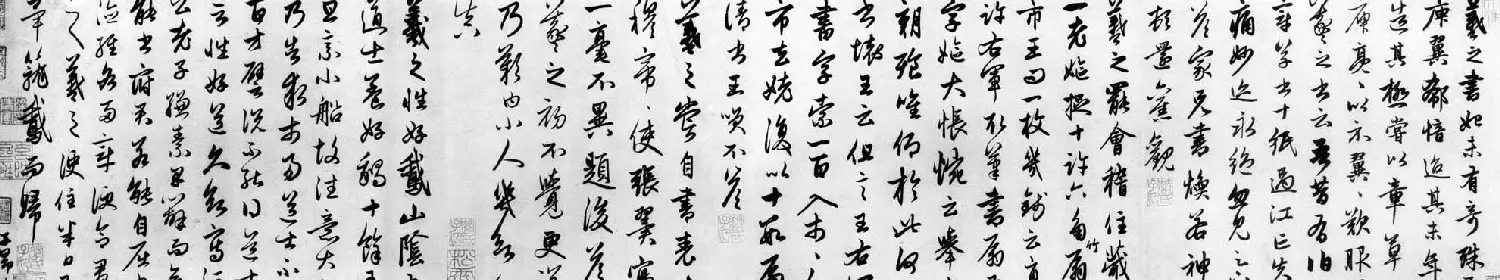 羲之書始未有奇殊
庾翼郗愔迨其末年
造其極嘗以章草
庾亮〻以示翼〻歎服
羲之書云吾昔有伯
章草書十紙過江亡失
痛妙迹永絕忽見
答家兄書煥若神
頓還舊觀
羲之罷會稽住蕺
一老嫗捉十許六角竹扇
市王曰一枚幾錢云直
許右軍取筆書扇
字嫗大悵惋云舉
朝飧唯仰於此何
書壞王云但言王右
書字索一百入市〻人
市去嫗復以十數扇
請書王笑不答
羲之嘗自書表
穆帝〻使張翼寫
一毫不異題後答
羲之初不覺更詳
乃歎曰小人幾欲
真
羲之性好鵝山陰
道士養好鵝十餘王
旦乘小船故往意大
乃告求市易道士不
百方譬說不能得道士
云性好道久欲寫河
公老子縑素早辦而無
能書府君若能自屈書
道經各兩章便合羣
羲之便住半日
畢籠鵝而歸